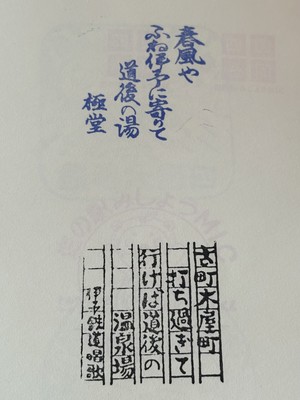 春風や
ふね伊予に寄りて
道後の湯
極堂
古町木屋町
打ち過ぎて
行けば道後の
温泉場
伊予鉄道唱歌